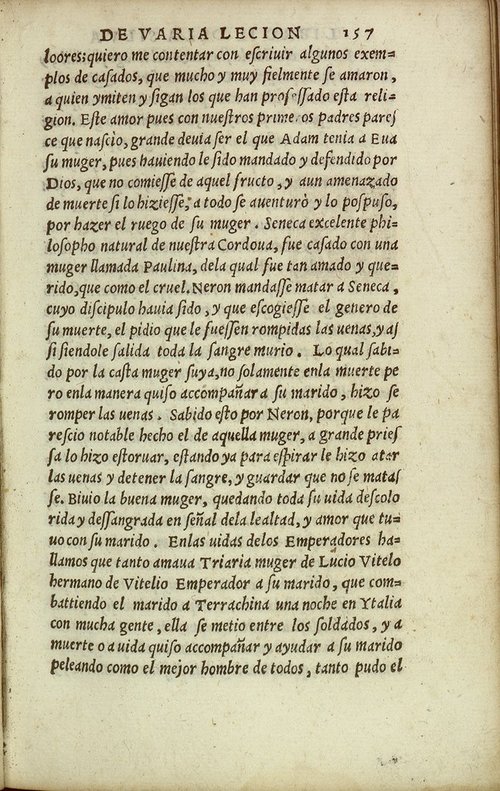 DE VARIA LECION 157
loores: quiero me contentar con eſcriuir algunos exem=
plos de caſados, que mucho y muy fielmente ſe amaron,
a quien ymiten y ſigan los que han profeſſado eſta reli=
gion. Eſte amor pues con nueſtros prime os padres pareſ
ce que naſcio, grande deuia ſer el que Adam tenia a Eua
ſu muger, pues hauiendo le ſido mandado y defendido por
Dios, que no comieſſe de aquel fructo, y aun amenazado
de muerte ſi lo hizieſſe, a todo ſe auenturò y lo poſpuſo,
por hazer el ruego de ſu muger. Seneca excelente phi=
loſopho natural de nueſtra Cordoua, fue caſado con una
muger llamada Paulina, dela qual fue tan amado y que=
rido, que como el cruel. Neron mandaſſe matar a Seneca,
cuyo diſcipulo hauia ſido, y que eſcogieſſe el genero de
ſu muerte, el pidio que le fueſſen rompidas las uenas, y aſ
ſi ſiendole ſalida toda la ſangre murio. Lo qual ſabi=
do por la caſta muger ſuya, no ſolamente enla muerte pe
ro enla manera quiſo accompañar a ſu marido, hizo ſe
romper las uenas. Sabido eſto por Neron, porque le pa
reſcio notable hecho el de aquella muger, a grande prieſ
ſa lo hizo eſtoruar, eſtando ya para eſpirar le hizo atar
las uenas y detener la ſangre, y guardar que no ſe mataſ
ſe. Biuio la buena muger, quedando toda ſu uida deſcolo
rida y deſſangrada en ſeñal dela lealtad, y amor que tu=
uo con ſu marido. Enlas uidas delos Emperadores ha=
llamos que tanto amaua Triaria muger de Lucio Vitelo
hermano de Vitelio Emperador a ſu marido, que com=
battiendo el marido a Terrachina una noche en Ytalia
con mucha gente, ella ſe metio entre los ſoldados, y a
muerte o a uida quiſo accompañar y ayudar a ſu marido
peleando como el mejor hombre de todos, tanto pudo el